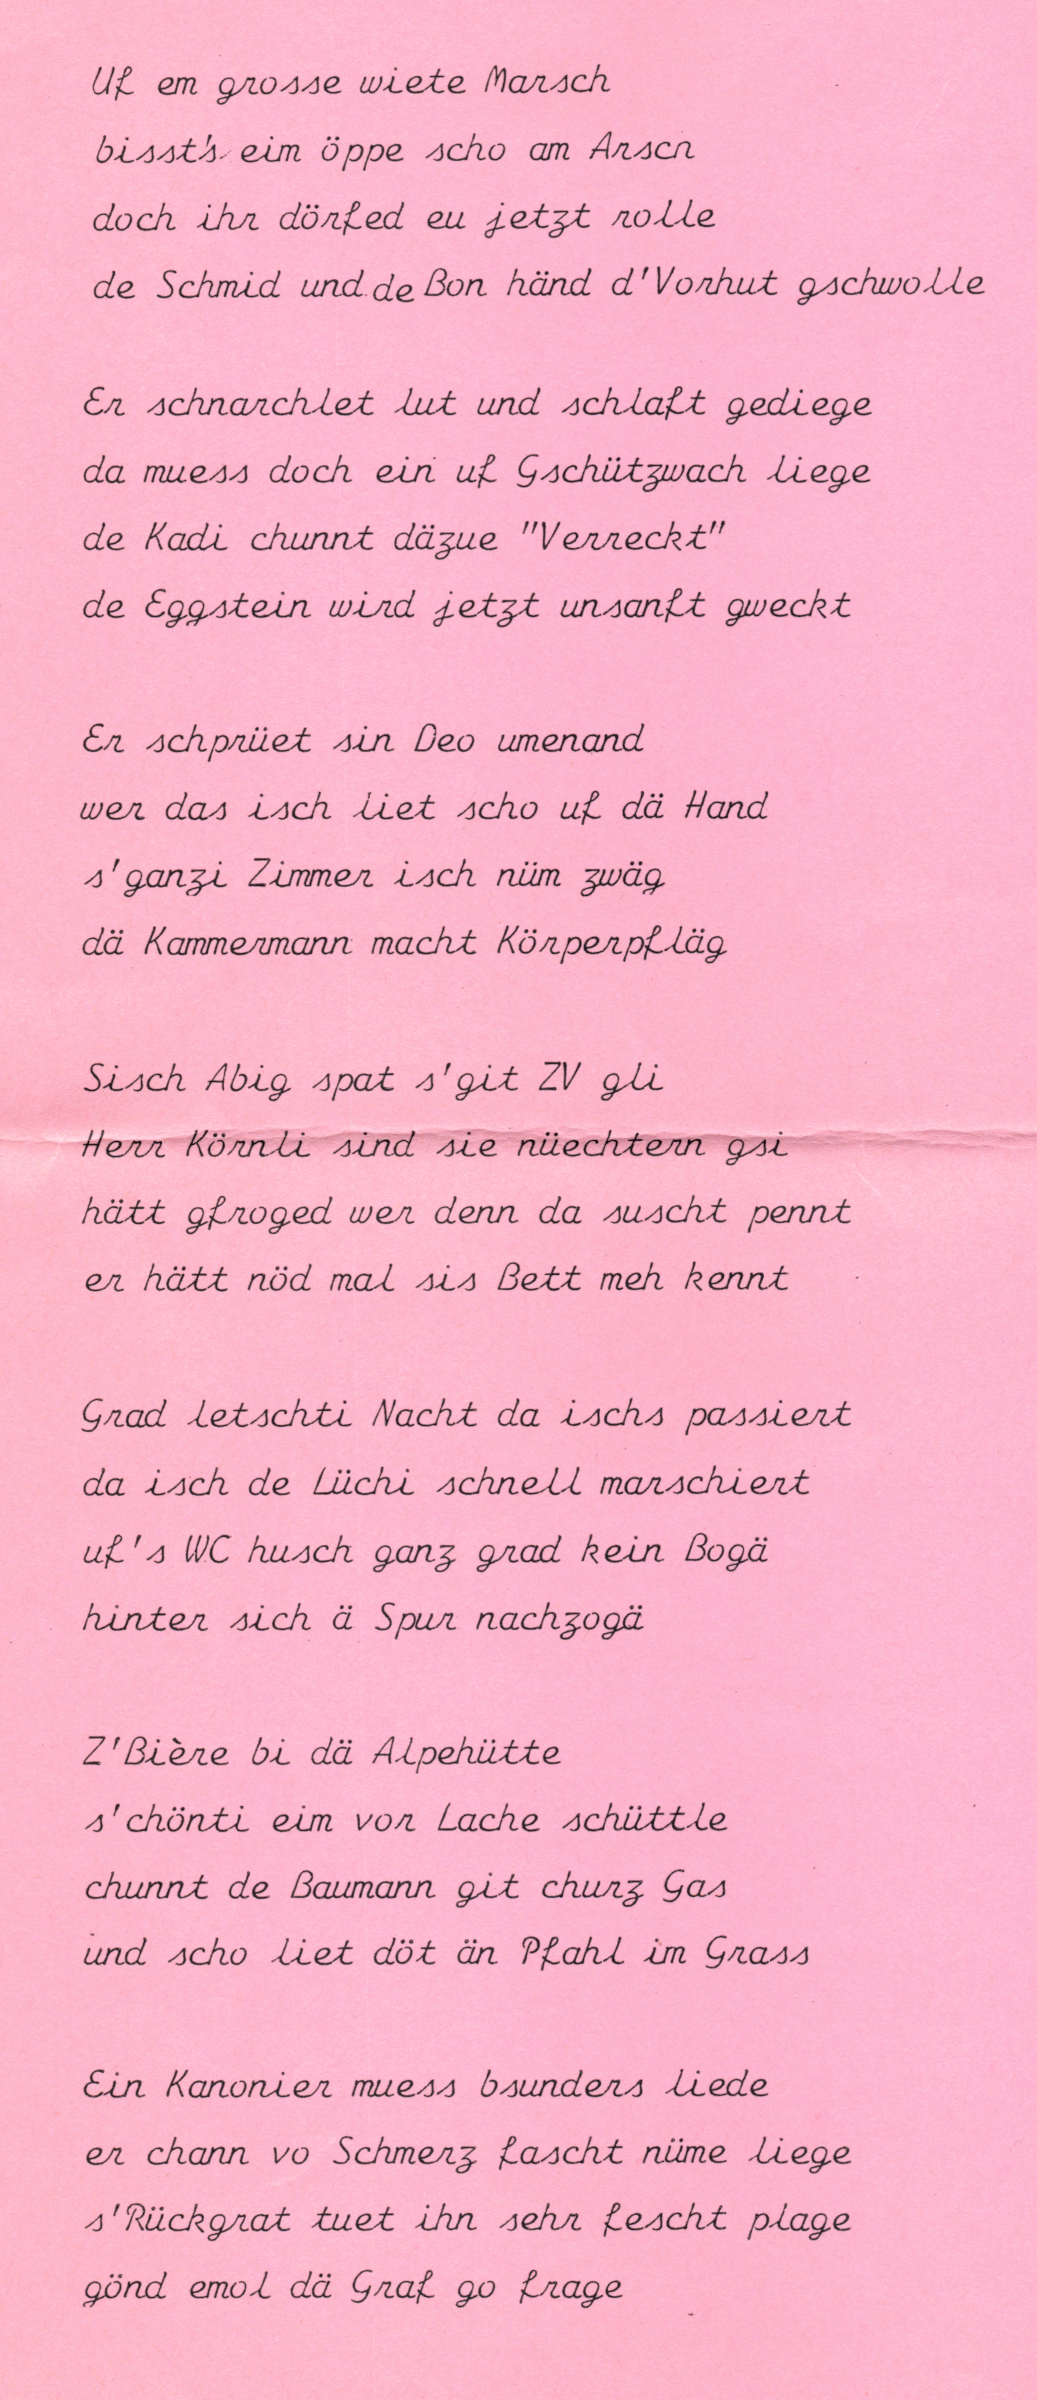 Uf em grosse wiete Marsch
bisst's eim öppe scho am Arsch
doch ihr dörfed eu jetzt rolle
de Schmid und de Bon händ d'Vorhut gschwolle

Er schnarchlet lut und schlaft gediege
da muess doch ein uf Gschützwach liege
de Kadi chunnt däzue "Verreckt"
de Eggstein wird jetzt unsanft gweckt

Er schprüet sin Deo umenand
wer das isch liet scho uf dä Hand
s'ganzi Zimmer isch nüm zwäg
dä Kammermann macht Körperpfläg

Sisch Abig spat s'git ZV gli
Herr Körnli sind sie nüechtern gsi
hätt gfroged wer denn da suscht pennt
er hätt nöd mal sis Bett meh kennt

Grad letschti Nacht da ischs passiert
da isch de Lüchi schnell marschiert
uf's WC husch ganz grad kein Bogä
hinter sich ä Spur nachzogä

Z'Bière bi dä Alpehütte
s'chönti eim vor Lache schüttle
chunnt de Baumann git churz Gas
und scho liet döt än Pfahl im Grass

Ein Kanonier muess bsunders liede
er chann vo Schmerz fascht nüme liege
s'Rückgrat tuet ihn sehr fescht plage
gönd emol dä Graf go frage